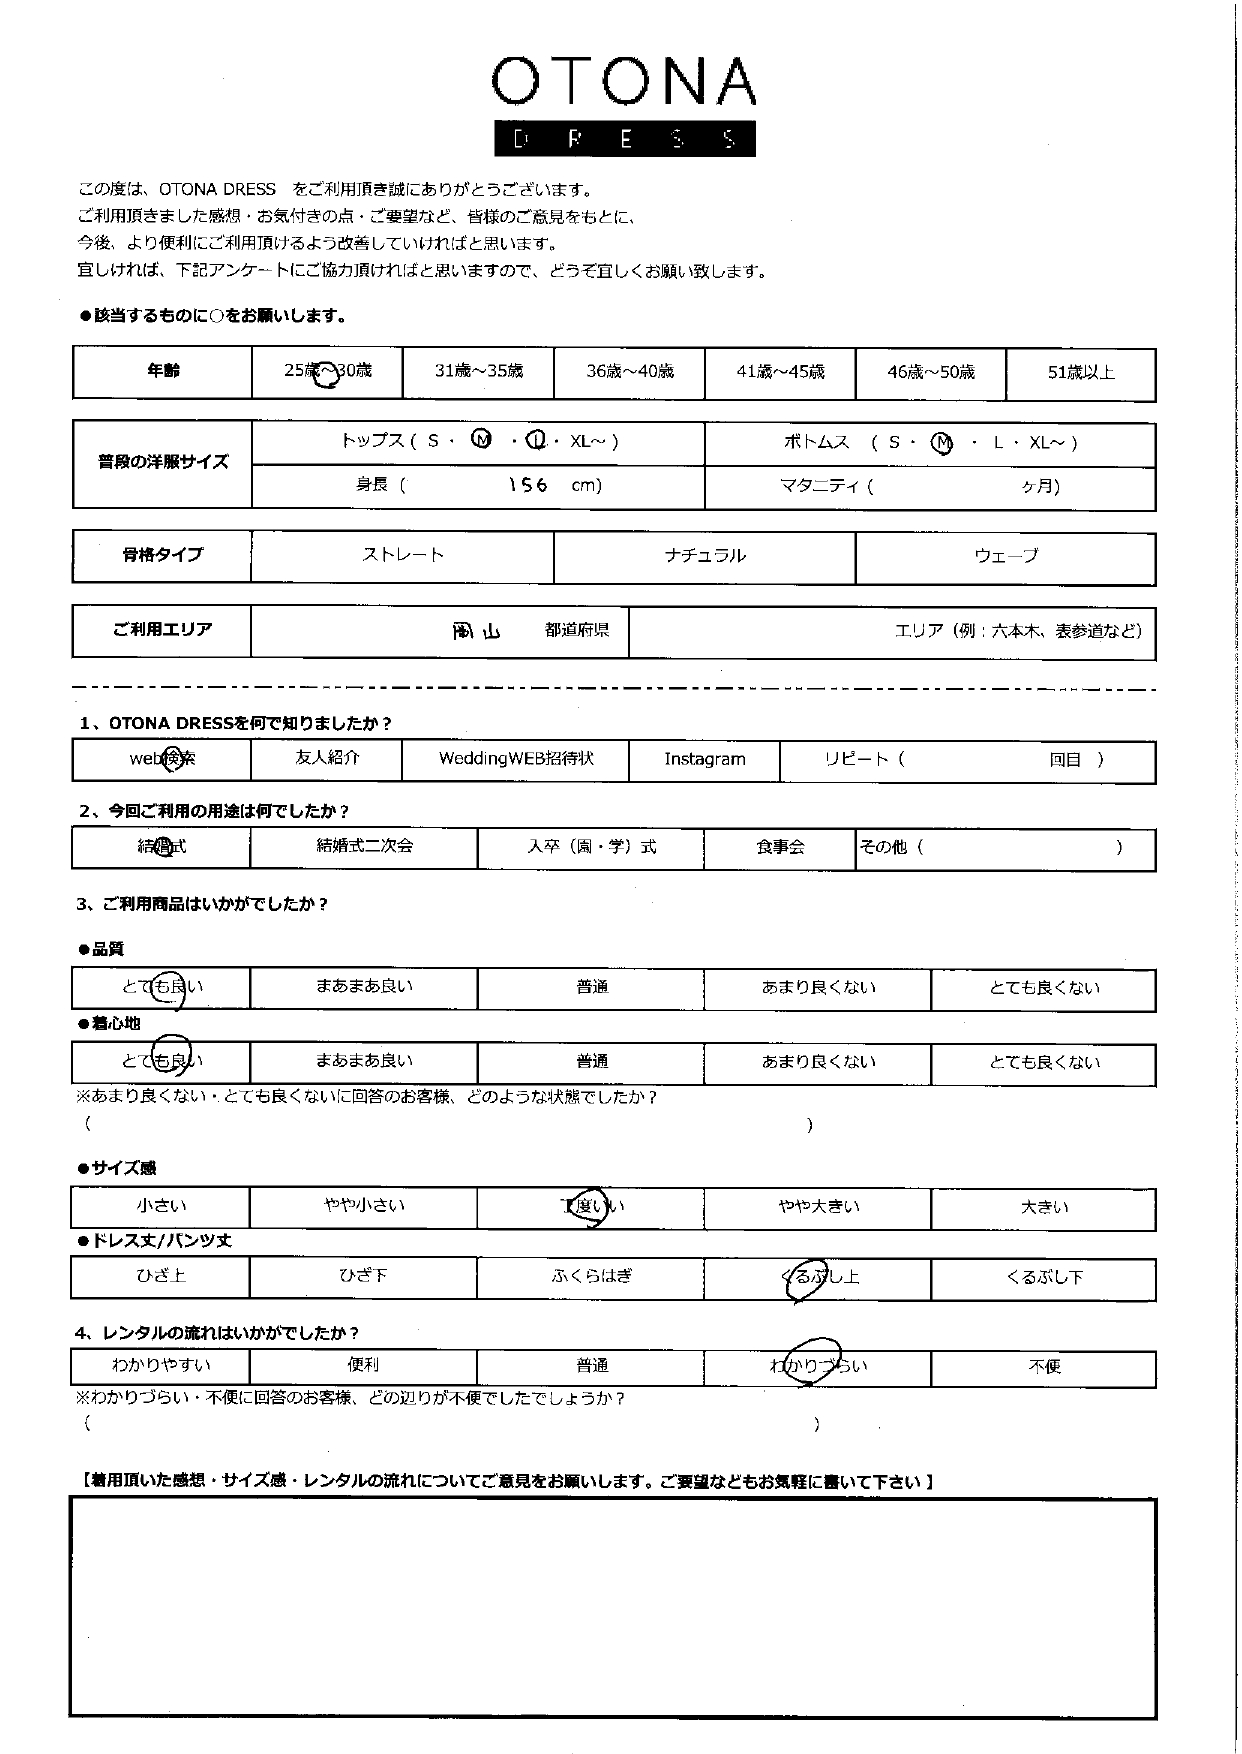 OTONA
DRESS
この度は、OTONA DRESS をご利用頂き誠にありがとうございます。
ご利用頂きました感想・お気付きの点・ご要望など、皆様のご意見をもとに、
今後、より便利にご利用頂けるよう改善していければと思います。
宜しければ、下記アンケートにご協力頂ければと思いますので、どうぞ宜しくお願い致します。
●該当するものに○をお願いします。
年齢 25歳～30歳 31歳～35歳 36歳～40歳 41歳～45歳 46歳～50歳 51歳以上
普段の洋服サイズ
トップス ( S ・ M ・ L ・ XL～ ) ボトムス ( S ・ M ・ L ・ XL～ )
身長 ( 156 cm) マタニティ ( ヶ月)
骨格タイプ ストレート ナチュラル ウェーブ
ご利用エリア 岡山 都道府県 エリア（例：六本木、表参道など）
1、OTONA DRESSを何で知りましたか？
web検索 友人紹介 WeddingWEB招待状 Instagram リピート ( 回目 )
2、今回ご利用の用途は何でしたか？
結婚式 結婚式二次会 入卒（園・学）式 食事会 その他 ( )
3、ご利用商品はいかがでしたか？
●品質
とても良い まあまあ良い 普通 あまり良くない とても良くない
●着心地
とても良い まあまあ良い 普通 あまり良くない とても良くない
※あまり良くない・とても良くないに回答のお客様、どのような状態でしたか？
( )
●サイズ感
小さい やや小さい 丁度いい やや大きい 大きい
●ドレス丈/パンツ丈
ひざ上 ひざ下 ふくらはぎ くるぶし上 くるぶし下
4、レンタルの流れはいかがでしたか？
わかりやすい 便利 普通 わかりづらい 不便
※わかりづらい・不便に回答のお客様、どの辺りが不便でしたでしょうか？
( )
【着用頂いた感想・サイズ感・レンタルの流れについてご意見をお願いします。ご要望などもお気軽に書いて下さい】